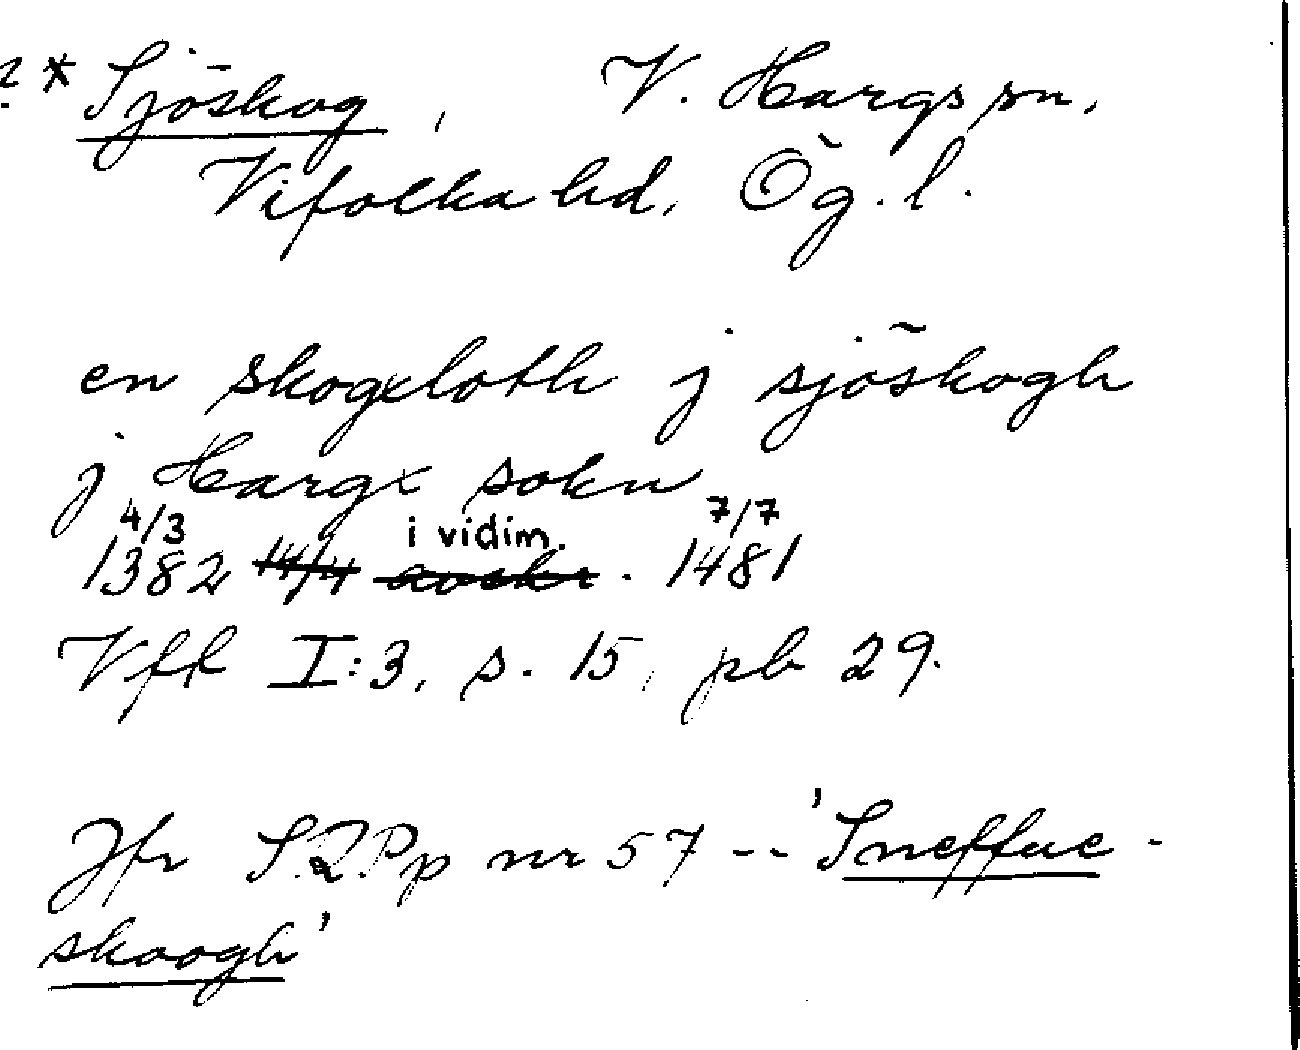 ? * Sjöskog, V. Hargs sn,
Vifolka hd, Ög. l.
en skogxloth j sjöskogh
j Hargx sokn
4/3 i vidim. 7/7
1382 14/4 avskr. 1481
Vfk I:3, s. 15, pb 29.
Jfr SRPp nr 57 -- 'Sneffue-
skoogh'